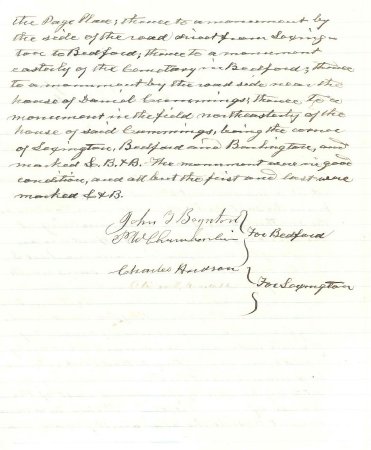 the Page Place; thence to a monument by
the side of the road direct from Lexing-
ton to Bedford; thence to a monument
easterly of the Cemetary in Bedford; thence
to a monument by the road side near the
house of Daniel Cummings; thence to a
monument in the field northeasterly of the
house of said Cummings, being the corner
of Lexington, Bedford and Burlington, and
marked L. B. & B. The monument were in good
condition, and all but the first and last were
marked L & B.
John F Boynton
P. W. Chamberlin
For Bedford
Charles Hudson
For Lexington